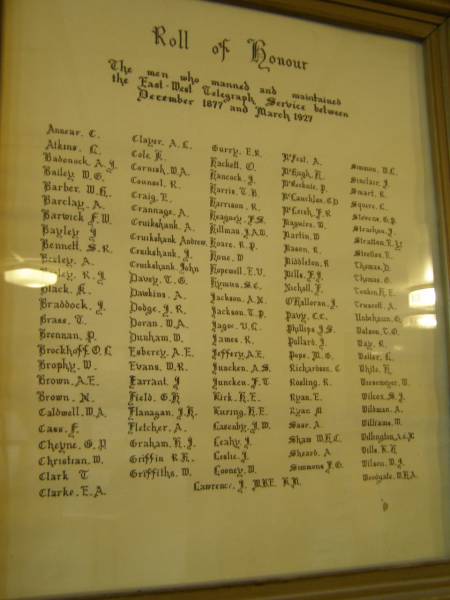 Roll of Honour
The men who manned and maintained
the East-West Telegraph Service between
December 1877 and March 1927
Annear, C.
Atkins, L.
Badenock, A. J.
Bailey, W. G.
Barber, W. H.
Barclay, A.
Barwick, F. W.
Bayley, J
Bennett, S. R.
Black, H.
Braddock, J.
Brass, T.
Brennan, P.
Brockhoff, O. L.
Brophy, W.
Brown, A. E.
Brown, N.
Caldwell, W. A.
Cass, F.
Cheyne, G. P
Christian, W.
Clark T
Clarke, E. A.
Clayer, A. L.
Cole, H.
Cornish, W. A.
Counsel, R.
Craig, E.
Crannage, A.
Cruikshank, A.
Cruikshank, Andrew
Cruikshank, J.
Cruikshank, John
Davey, T. G.
Dawkins, A.
Dodge, J. R.
Doran, W. A.
Dunham, W.
Esberey, A. E.
Evans, W. R.
Farrant, J
Field, G. H
Flanagan, J. H.
Fletcher, A.
Graham, H. J.
Griffin R. H.
Griffiths, W.
Gurry, E. R.
Hackett, O.
Hancock, J.
Harris, T. B
Harrison, R.
Heagney, J. S.
Hillman, J. A. W.
Hoare, R. P.
Hone, W
Hopewell, E. V.
Hymus, S. C.
Jackson, A. N.
Jackson, T. P.
Jagoe, V. L.
James, R.
Jeffery, A. E.
Juncken, A. S.
Juncken, F. T
Kirk, H. E.
Kuring, H. E.
Lasenby, J. W.
Leahy, J.
Leslie, J.
Looney, W.
Lawrence, J. M.B.E. R.N.
McHugh, H.
McKechnie, P.
McLeish, J. R
Maguire, W.
Martin, W
Mason, R.
Middleton, R
Mills, F. J
Nicholl, F.
O'Halloran, J.
Pavy, C. C.
Phillips, J. S.
Pollard, J.
Pope, M. G.
Richardson, C
Rosling, R.
Ryan, E.
Ryan M
Saar, A.
Shaw, W. H. C.
Sheard, A
Simmons, J. G.
Simmon, W. L.
Sinclair, J.
Smart, R.
Squire, C.
Stevens, G. P.
Strachan, J.
Thomas, D.
Thomas, G.
Truscott, A.
Watson, T. O.
Way, R.
White, H.
Wilcox, S. J.
Wildman, A.
Williams, W.
Wills, R. H
Wilson, W. J.
Woodgate, W. H. A.